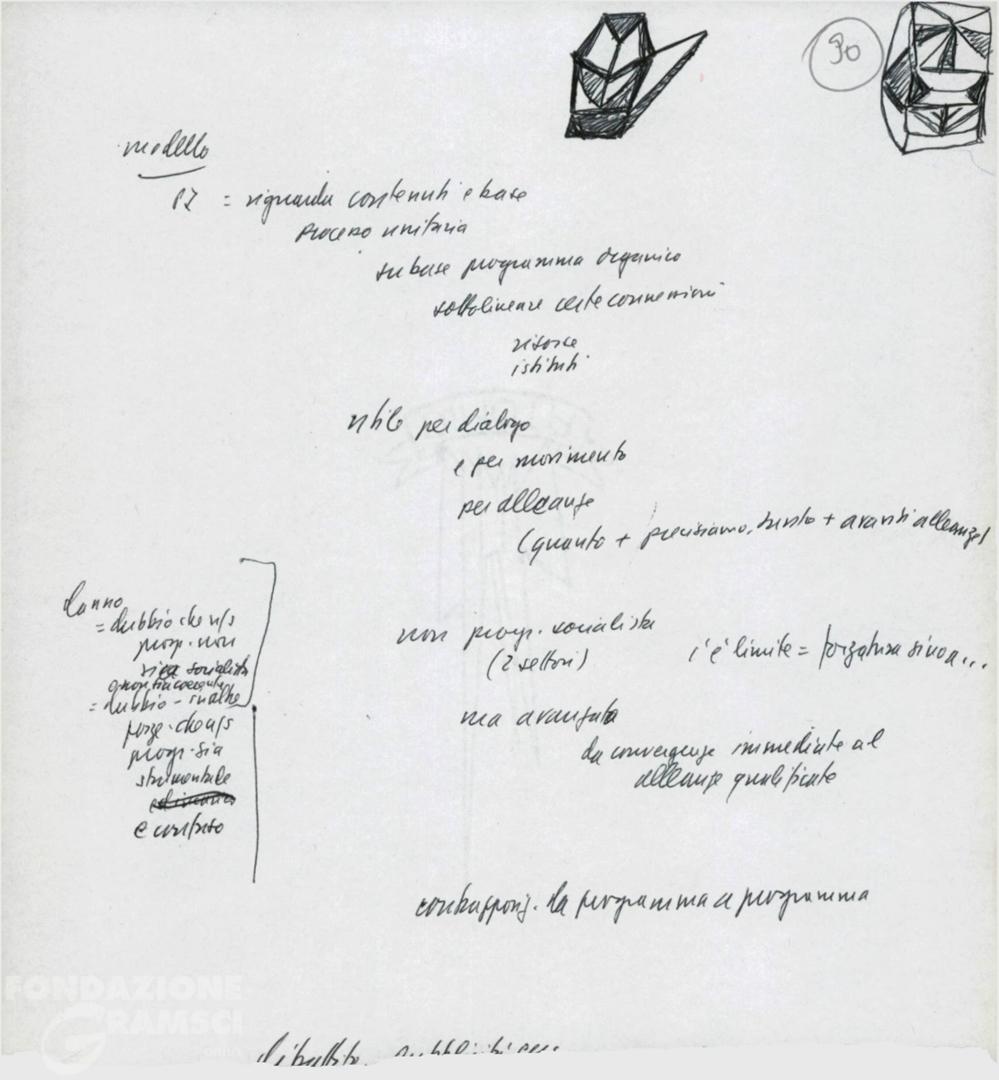 30
modello
= riguarda contenuti e base
processo unitario
su base programma organico
sottolineare certe connessioni
risorse
istituti
utile per dialogo
e per movimento
per alleanze
(quanto + precisiamo, tanto + avanti alleanze)
danno
= dubbio che ns
progr. non
sia socialista
= dubbio - in altre
forze - che ns
progr. sia
strumentale
e confuso
non progr. socialista
(2 settori)
c'è limite = forzatura sino a...
ma avanzata
da convergenze immediate al
alleanze qualificate
contrappos. da programma a programma
FONDAZIONE
GRAMSCI
dibattito